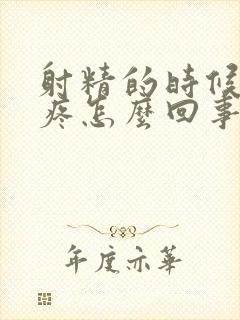 射精的時候
疼怎麼回事
年度亦華